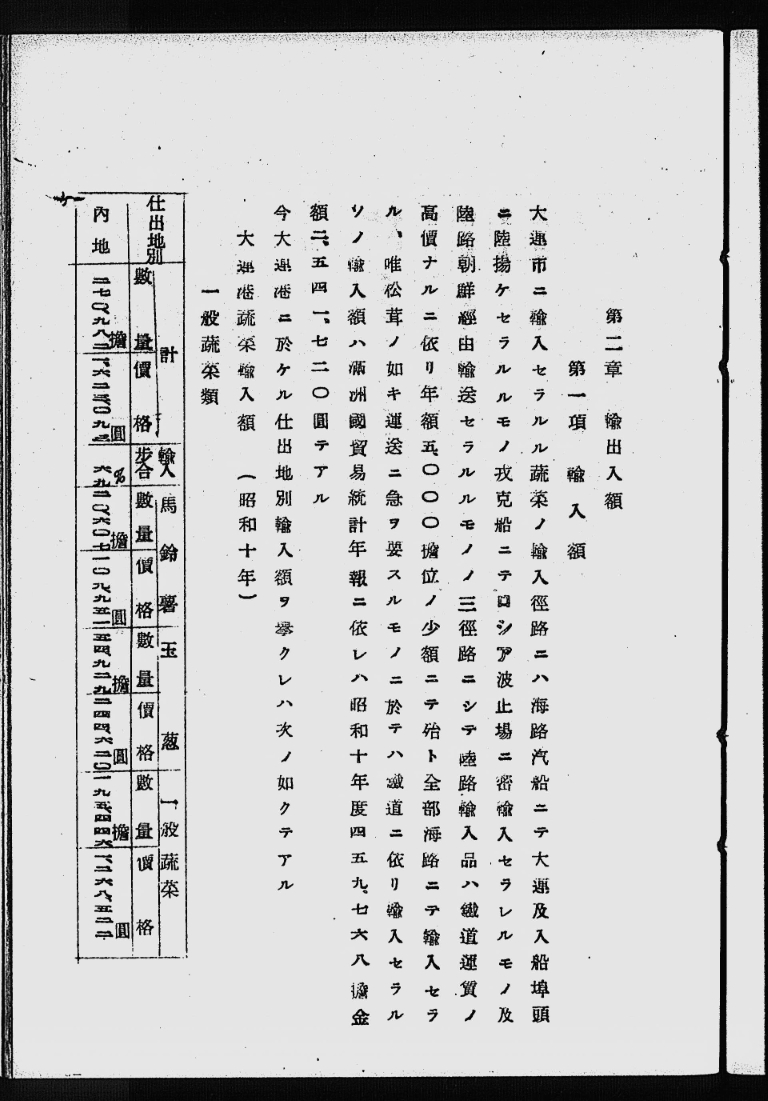 第二章　輸出入額
第一項　輸入額
大連市ニ輸入セラルル蔬菜ノ輸入徑路ニハ海路汽船ニテ大連及入船埠頭
ニ陸揚ケセラルルモノ戎克船ニテロシア波止場ニ密輸入セラレルモノ及
陸路朝鮮經由輸送セラルルモノノ三徑路ニシテ陸路輸入品ハ鐵道運賃ノ
高價ナルニ依リ年額五、〇〇〇擔位ノ少額ニテ殆ト全部海路ニテ輸入セラ
ル、唯松茸ノ如キ運送ニ急ヲ要スルモノニ於テハ鐵道ニ依リ輸入セラル
ソノ輸入額ハ滿洲國貿易統計年報ニ依レハ昭和十年度四五九、七六八擔金
額二、五四一、七二〇圓テアル
今大連港ニ於ケル仕出地別輸入額ヲ擧クレハ次ノ如クテアル
大連港蔬菜輸入額　（昭和十年）
一般蔬菜類
仕出地別　計　輸入步合　馬鈴薯　玉葱　一般蔬菜
數量　價格　數量　價格　數量　價格　數量　價格
擔　圓　%　擔　圓　擔　圓　擔　圓
內地